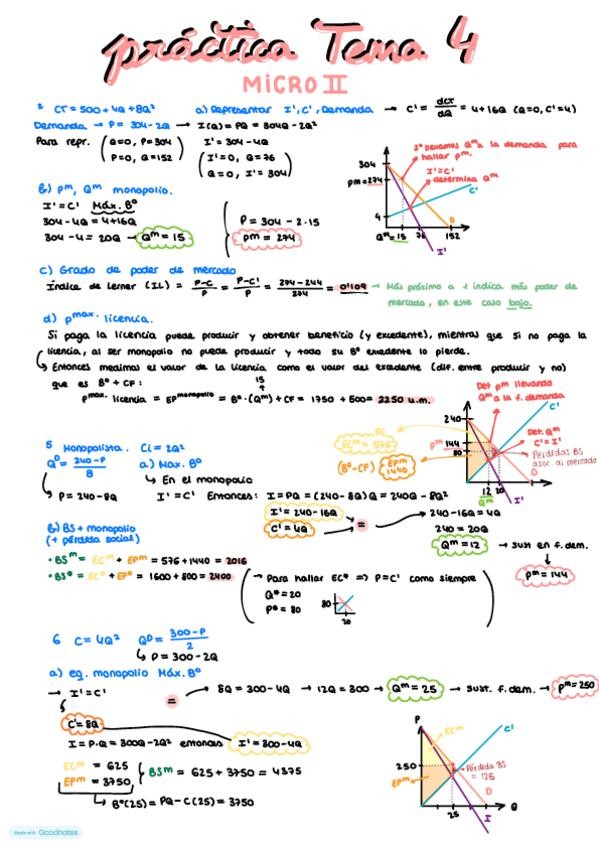 práctica Tema 4
MICRO II
² CT = 500 + 4Q + 8Q² a) Representar I', C', Demanda → C' = dCT/dQ = 4 + 16Q (Q=0, C'=4)
Demanda → P = 304 - 2Q → I(Q) = PQ = 304Q - 2Q²
Para repr. (Q=0, P=304 I' = 304 - 4Q
P=0, Q=152) (I'=0, Q=76
Q=0, I'=304)
2º llevamos Qᵐ a la demanda para
hallar pm.
I'=C'
determina Qᵐ
304
pm=274
4
Qᵐ=15 76 152
C'
D
I'
b) pᵐ, Qᵐ monopolio.
I'=C' Máx. Bº
304 - 4Q = 4 + 16Q
304 - 4 = 20Q → Qᵐ = 15
P = 304 - 2·15
pm = 274
c) Grado de poder de mercado
Índice de Lerner (IL) = P-C/P = P-C'/P = 274-244/274 = 0'109 → Más próximo a 1 indica más poder de
mercado, en este caso bajo.
d) pmax. licencia.
Si paga la licencia puede producir y obtener beneficio (y excedente), mientras que si no paga la
licencia, al ser monopolio no puede producir y todo su Bº excedente lo pierde.
Entonces medimos el valor de la licencia como el valor del excedente (dif. entre producir y no)
que es Bº + CF:
15
pmax. licencia = EPmonopolio = Bº·(Qᵐ) + CF = 1750 + 500 = 2250 u.m.
Det pm llevando
Qᵐ a la f. demanda
C'
240
EC
ECᵐ = 576
pm 144
80
Det. Qᵐ
C'=I'
Pérdidas BS
asoc. al mercado
(Bº-CF) Epm
1440
D
12 20
Qᵐ
I'
5 Monopolista. Ci = 2Q²
Qᴰ = 240-P/8 a) Máx. Bº
En el monopolio
P = 240 - 8Q I'=C' Entonces: I = PQ = (240-8Q)Q = 240Q - 8Q²
I' = 240 - 16Q
C' = 4Q
=
240 - 16Q = 4Q
240 = 20Q
Qᵐ = 12 → sust en f. dem.
pᵐ = 144
b) BS + monopolio
(+ pérdida social)
• BSᵐ = ECᵐ + Epm = 576 + 1440 = 2016
• BS* = EC* + EP* = 1600 + 800 = 2400
→ Para hallar EC* => P=C' como siempre
Q* = 20
P* = 80
80
20
6 C = 4Q² QD = 300-P/2
P = 300 - 2Q
a) eq. monopolio Máx. Bº
→ I'=C'
=
8Q = 300 - 4Q → 12Q = 300 → Qᵐ = 25 → sust. f. dem. → pᵐ = 250
C' = 8Q
I = P·Q = 300Q - 2Q² entonces I' = 300 - 4Q
ECᵐ = 625
EPm = 3750
BSᵐ = 625 + 3750 = 4375
Bº(25) = PQ - C(25) = 3750
P
ECᵐ
C'
250
Pérdida BS
= 125
EPm
D
25
I
Q
Made with Goodnotes